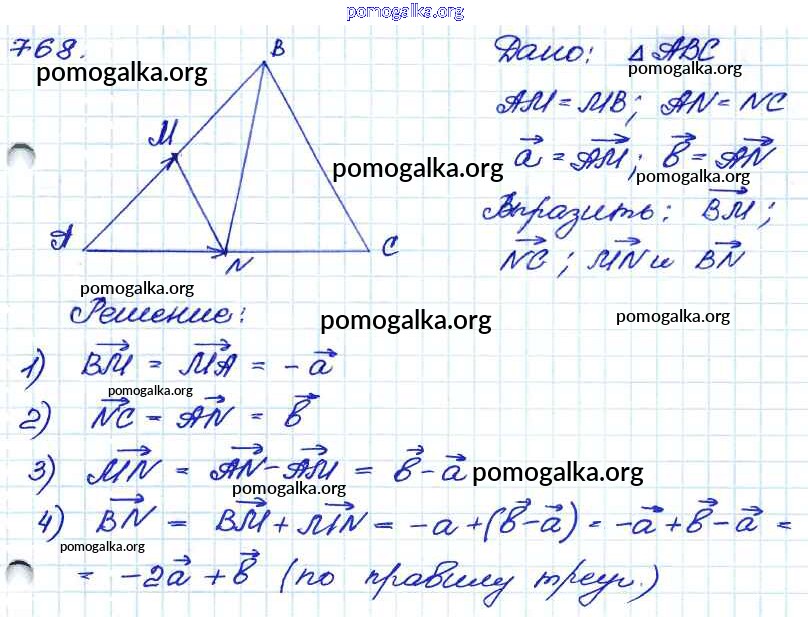 pomogalka.org
768.
B
Дано: △ABC
pomogalka.org
pomogalka.org
AM = MB; AN = NC
M
a⃗ = AM⃗; b⃗ = AN⃗
pomogalka.org
pomogalka.org
Выразить: BM⃗;
A
N
C
NC⃗; MN⃗ и BN⃗
pomogalka.org
Решение:
pomogalka.org
pomogalka.org
1) BM⃗ = MA⃗ = -a⃗
pomogalka.org
2) NC⃗ = AN⃗ = b⃗
3) MN⃗ = AN⃗ - AM⃗ = b⃗ - a⃗
pomogalka.org
pomogalka.org
4) BN⃗ = BM⃗ + MN⃗ = -a + (b⃗ - a⃗) = -a⃗ + b⃗ - a⃗ =
pomogalka.org
= -2a⃗ + b⃗ (по правилу треуг.)